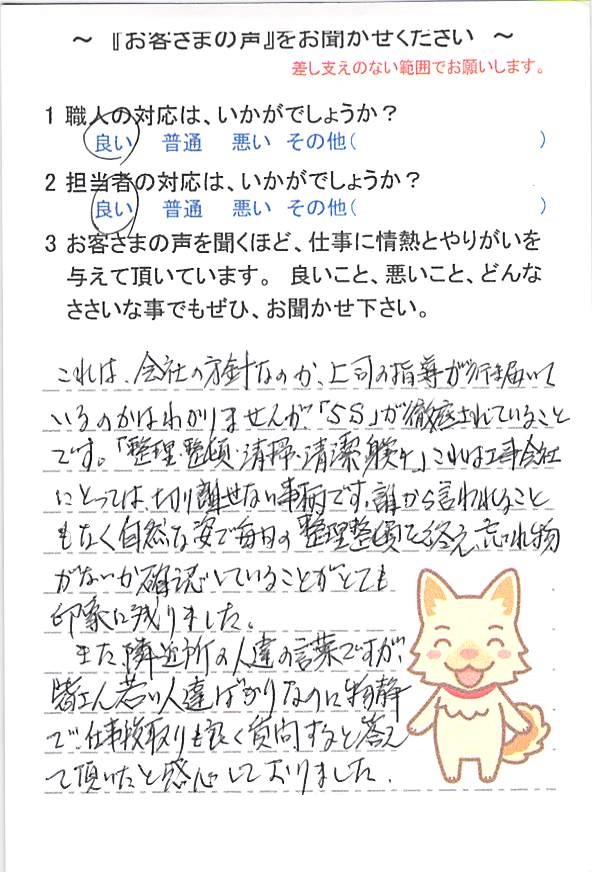 ～ 『お客さまの声』をお聞かせください ～
差し支えのない範囲でお願いします。
1 職人の対応は、いかがでしょうか？
良い 普通 悪い その他( )
2 担当者の対応は、いかがでしょうか？
良い 普通 悪い その他( )
3 お客さまの声を聞くほど、仕事に情熱とやりがいを
与えて頂いています。 良いこと、悪いこと、どんな
ささいな事でもぜひ、お聞かせ下さい。
これは、会社の方針なのか、上司の指導が行き届いて
いるのかはわかりませんが、「5S」が徹底されていること
です。「整理・整頓・清掃・清潔・躾ケ」これは工事会社
にとっては、切り離せない事柄です。誰から言われること
もなく自然な姿で毎日の整理整頓を終え、忘れ物
がないか確認していることがとても
印象に残りました。
また、隣近所の人達の言葉ですが、
皆さん若い人達ばかりなのに物静
で、仕事段取りも良く質問すると答え
て頂いたと感心しておりました.